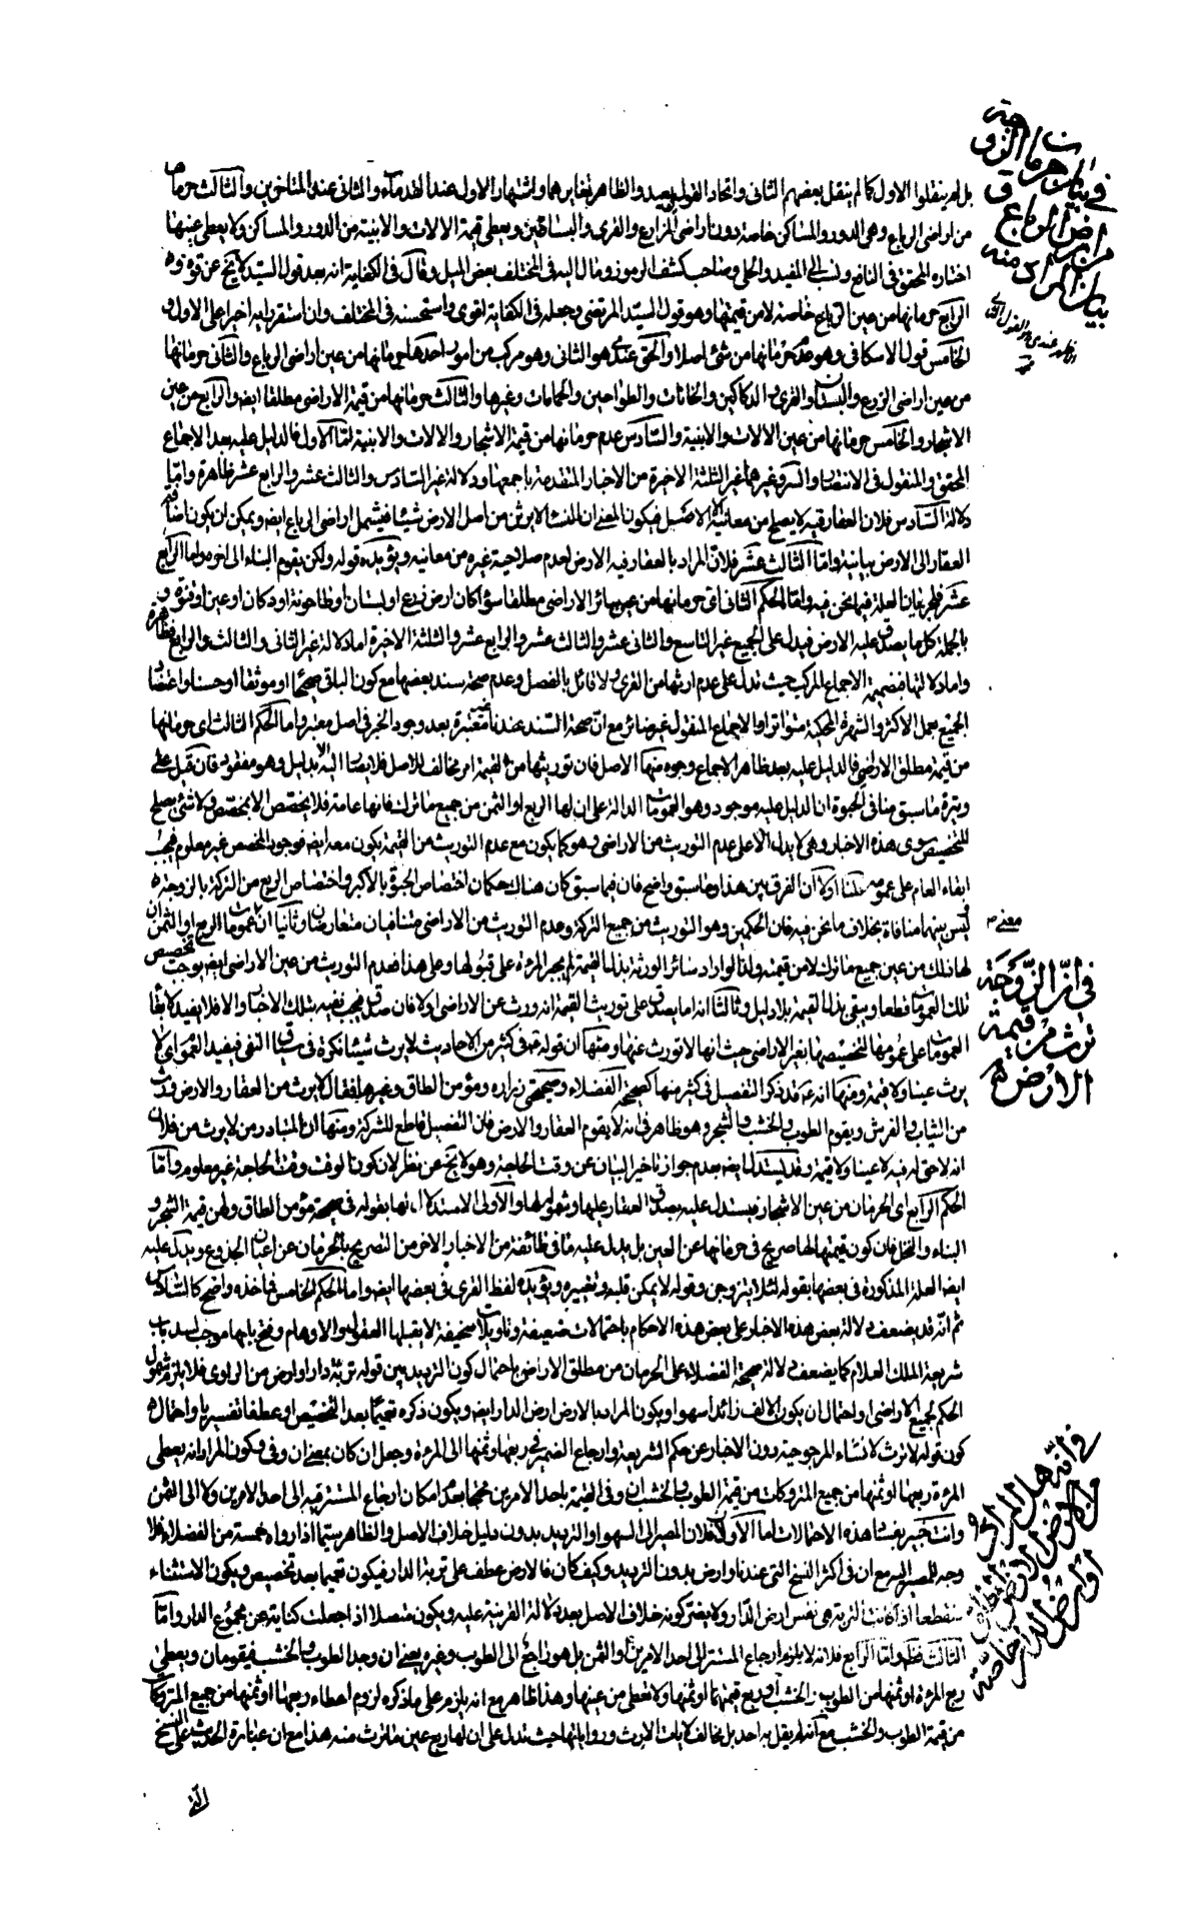 بل لم ينقلوا الاول كما لم ينقل بعضهم الثانى واتحاد القولين بعيد والظاهر تغايرهما واشتهار الاول عند القدماء والثانى عند المتاخرين والثالث حرمانها
من اراضى الرباع وهى الدور والمساكن خاصة دون اراضى المزارع والقرى والبساتين ويعطى قيمة الالات والابنية من الدور والمساكن ولا يعطى عينها
اختاره المحقق فى النافع ونسب الى المفيد والحلى وصاحب كشف الرموز ومال اليه فى المختلف بعض الميل وقال فى الكفاية انه بعد قول السيد لا يخ عن قوة وه
الرابع حرمانها من عين الرباع خاصة لا من قيمتها وهو قول السيد المرتضى وجعله فى الكفاية اقوى واستحسنه فى المختلف وان استقر رايه اخيرا على الاول و
الخامس قول الاسكافى وهو عدم حرمانها من شئ اصلا والحق عندى هو الثانى وهو مركب من امور احدها حرمانها من عين اراضى الرباع والثانى حرمانها
من عين اراضى الزرع والبستان والقرى والدكاكين والخانات والطواحين والحمامات وغيرها والثالث حرمانها من قيمة الاراضى مطلقا ايضا والرابع من عين
الاشجار والخامس حرمانها من عين الالات والابنية والسادس عدم حرمانها من قيمة الاشجار والالات والابنية امّا الاول فالدليل عليه بعد الاجماع
المحقق والمنقول فى الانتصار والسرائر وغيرهما غير الثلثة الاخيرة من الاخبار المتقدمة باجمعها ودلالة غير السادس والثالث عشر والرابع عشر ظاهرة وامّا
دلالة السادس فلان العقار فيه لا يصلح من معانيه الا الاصل فيكون المعنى ان النساء لا يرثن من اصل الارض شيئا فيشمل اراضى الرباع ايضا ويمكن ان يكون اضافة
العقار الى الارض بيانية وامّا الثالث عشر فلان المراد بالعقار فيه الارض لعدم صلاحية غيره من معانيه ويؤيده قوله ولكن يقوم البناء الى اخره واما الرابع
عشر فلجريان العلة فيما نحن فيه وامّا الحكم الثانى اى حرمانها من عين سائر الاراضى مطلقا سواء كان ارض زرع او بستان او طاحونة او دكان او عين او قنوة و
بالجملة كلما يصدق عليه الارض فيدل على الجميع غير التاسع والثانى عشر والثالث عشر والرابع عشر والثلثة الاخيرة اما دلالة غير الثانى والثالث والرابع فظاهرة
واما دلالتها فبضميمة الاجماع المركب حيث تدل على عدم ارثها من القرى ولا قائل بالفصل وعدم صحة سند بعضها مع كون الباقى صحيحا او موثقا او حسنا واعتضاد
الجميع بعمل الاكثر والشهرة المحكية متواترا والاجماع المنقول غير ضائر مع انّ صحة السند عندنا غير معتبرة بعد وجود الخبر فى اصل معتبر واما الحكم الثالث اى حرمانها
من قيمة مطلق الاراضى فالدليل عليه بعد ظاهر الاجماع وجوه منها الاصل فان توريثها من القيمة امر مخالف للاصل فلا يصار اليه الا بدليل وهو مفقود فان قيل على
وتيرة ما سبق منا فى الحبوة ان الدليل عليه موجود وهو العمومات الدالة على ان لها الربع او الثمن من جميع ما ترك فانها عامة فلا يخصص الا بمخصص ولا شئ يصلح
للتخصيص سوى هذه الاخبار وهى لا يدل الا على عدم التوريث من الاراضى وهو كما يكون مع عدم التوريث من القيمة يكون معه ايضا فوجود المخصص غير معلوم فيجب
ابقاء العام على عمومه قلنا اولا ان الفرق بين هذا وما سبق واضح فان فيما سبق كان هناك حكمان اختصاص الحبوة بالاكبر واختصاص الربع من التركة بالزوجة و
ليس بينهما منافاة بخلاف ما نحن فيه فان الحكمين وهو التوريث من جميع التركة وعدم التوريث من الاراضى متنافيان متعارضان وثانيا ان عمومات الربع او الثمن ان
لها ذلك من عين جميع ما ترك لا من قيمته ولذا لو اراد سائر الورثة بذل القيمة لم يجبر المرءة على قبولها وعلى هذا فعدم التوريث من عين الاراضى ايضا يوجب تخصيص
تلك العمومات قطعا ويبقى بذل القيمة بلا دليل وثالثا انه اما يصدق على توريث القيمة انه ورث عن الاراضى او لا فان صدق فيجب نفيه بتلك الاخبار والا فلا يفيد لابقاء
العمومات على عمومها لتخصيصها بغير الاراضى حيث انها لا تورث عنها ومنها ان قوله ع فى كثير من الاحاديث لا يرث شيئا نكرة فى سياق النفى فيفيد العموم اى لا
يرث عينا ولا قيمة ومنها انه ع قد ذكر التفصيل فى كثير منها كصحيحة الفضلاء وصحيحتى زرارة ومؤمن الطاق وغيرها فقال لا يرث من العقار والارض ورث
من الثياب والفرش ويقوم الطوب والخشب والشجر وهو ظاهر فى انه لا يقوم العقار والارض فان التفصيل قاطع للشركة ومنها ان المتبادر من لا يرث من فلان
انه لا حق له فيه لا عينا ولا قيمة وقد يستدل ايضا بعدم جواز تاخير البيان عن وقت الحاجة وهو لا يخ عن نظر لان كون الوقت وقت الحاجة غير معلوم وامّا
الحكم الرابع اى الحرمان من عين الاشجار فيستدل عليه بصدق العقار عليها وشموله لها والاولى الاستدلال لها بقوله فى صحيحة مؤمن الطاق ولهن قيمة الشجر و
البناء والنخل فان كون قيمتها لها صريح فى حرمانها عن العين بل يدل عليه ما فى طائفة من الاخبار الاخر من التصريح بالحرمان عن اعيان الجذوع ويدل عليه
ايضا العلة المذكورة فى بعضها بقوله لئلا يتزوجن وقوله لا يمكن قلبه وتغييره ويؤيده لفظ القرى فى بعضها ايضا واما الحكم الخامس فماخذه واضح كالسادس
ثم انّه قد يضعف دلالة بعض هذه الاخبار على بعض هذه الاحكام باحتمالات ضعيفة وتاويلات سخيفة لا يقبلها العقول والاوهام وفتح بابها موجب لسد باب
شريعة الملك العلام كما يضعف دلالة صحيحة الفضلاء على الحرمان من مطلق الاراضى باحتمال كون الترديد بين قوله تربة دار او ارض من الراوى فلا يلزم شمول
الحكم لجميع الاراضى واحتمال ان يكون الالف زائدا سهوا ويكون المراد بالارض ارض الدار ايضا ويكون ذكره تعميما بعد التخصيص او عطفا تفسيريا واحتمال
كون قوله لا ترث لانشاء المرجوحية دون الاخبار عن حكم الشريعة وارجاع الضمير فى ربعها وثمنها الى المرءة وجعل ان كان بمعنى ان وفى فيكون المراد انه يعطى
المرءة ربعها او ثمنها من جميع المتروكات من قيمة الطوب والخشب ان وفى القيمة باحد الامرين محتجا بعدم امكان ارجاع المستتر فيه الى احد الامرين ولا الى الثمن
وانت خبير بفساد هذه الاحتمالات اما الاول فلان المصير الى السهو او الترديد بدون دليل خلاف الاصل والظاهر سيما اذا رواه خمسة من الفضلاء فلا
وجه للمصير اليه مع ان فى اكثر النسخ التى عندنا وارض بدون الترديد وكيف كان فالارض عطف على تربة الدار فيكون تعميما بعد تخصيص ويكون الاستثناء
منقطعا اذ كانت التربة هى نفس ارض الدار ولا يضر كونه خلاف الاصل بعد دلالة القرينة عليه ويكون متصلا اذا جعلت كناية عن مجموع الدار وامّا
الثالث فظ وامّا الرابع فلانه لا يلزم ارجاع المستتر الى احد الامرين او الثمن بل هو راجع الى الطوب وغيره يعنى ان وجد الطوب والخشب فيقومان ويعطى
ربع المرءة او ثمنها من الطوب والخشب اى ربع قيمتها او ثمنها ولا تعطى من عينها وهذا ظاهر مع انه يلزم على ما ذكره لزوم اعطاء ربعها او ثمنها من جميع المتروكات
من قيمة الطوب والخشب مع انه لم يقل به احد بل مخالف لايات الارث ورواياتها حيث تدل على ان لها ربع عين ما ترث منه هذا مع ان عبارة الحديث على النسخ
التى
فى بيان حرمان الزوجة
من ارض الرباع و
بيان المراد منه
معنى م
فى انّ الزوجة
ترث من قيمة
الارض ام لا
فى انّه هل المراد
من الارض الارض مطلقا
او ارض الدار خاصة